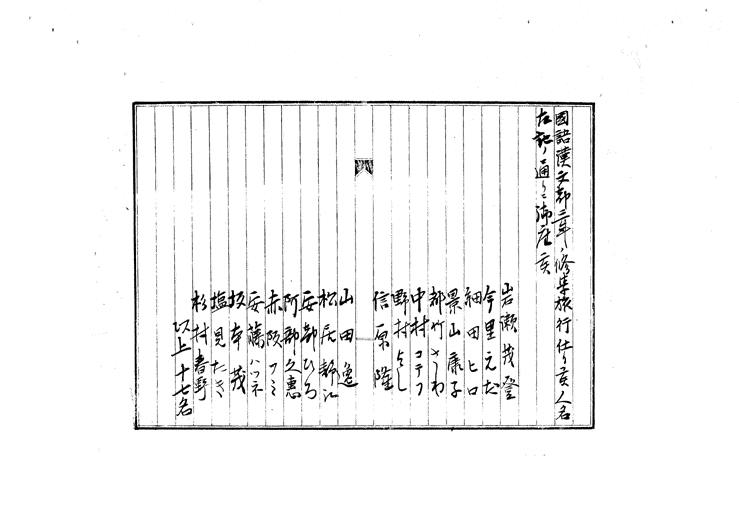 國語漢文部三年ノ修学旅行仕リ候人名
左記ノ通リニ御座候
岩瀬茂登
今里えだ
細田ヒロ
景山廉子
都竹さわ
中村コテフ
野村よし
信原隆
山田逸
松居静江
安部ひろ
阿部久恵
赤阪フミ
安藤ハツネ
坂本茂
塩見たき
杉村春野
以上十七名